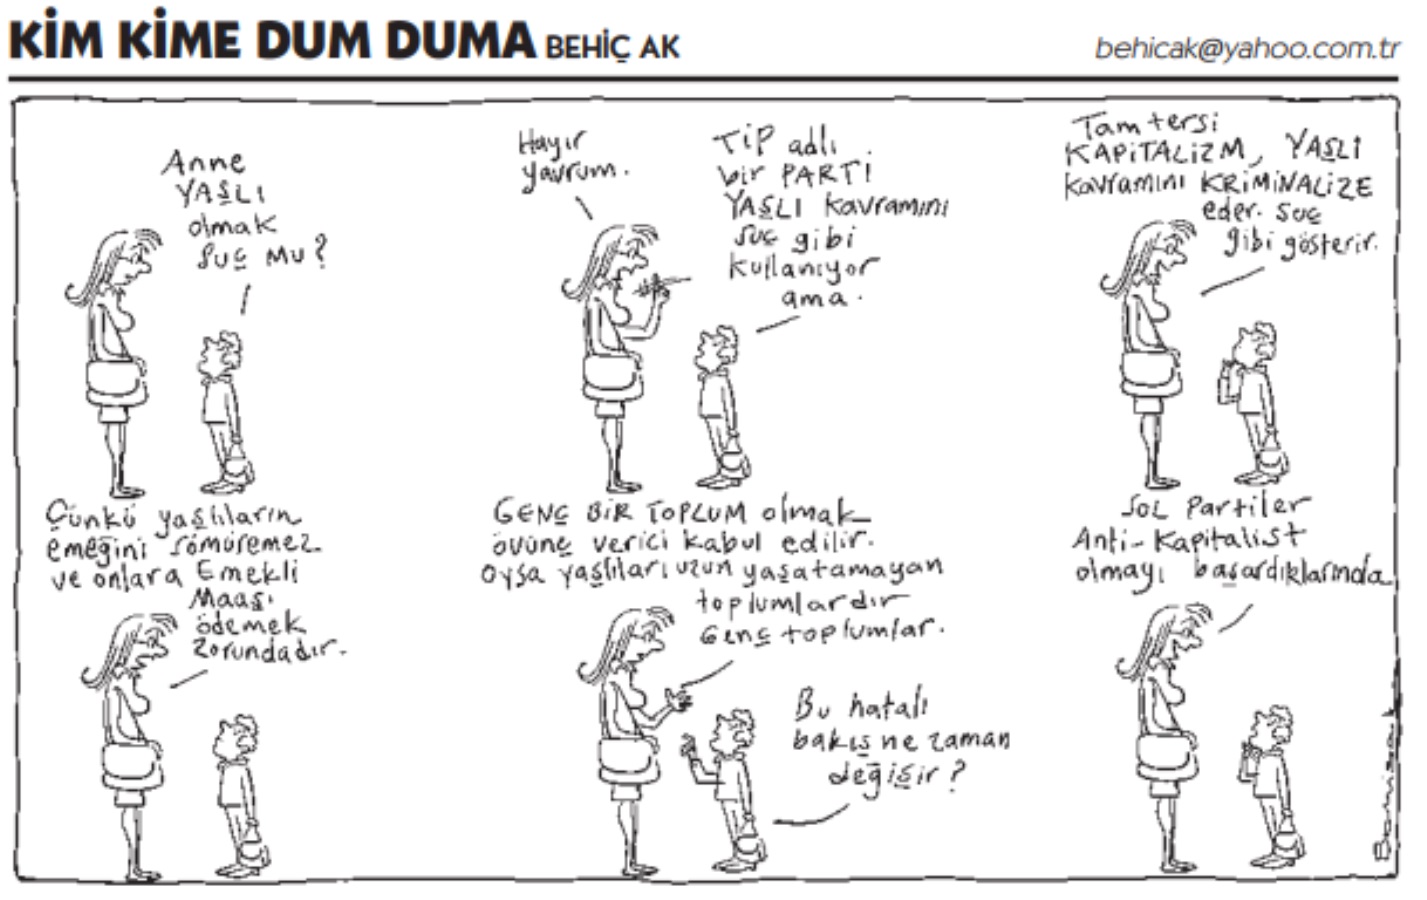 KİM KİME DUM DUMA BEHİÇ AK
behicak@yahoo.com.tr
Anne
YAŞLI
olmak
suç mu?
Hayır
yavrum.
TİP adlı
bir PARTİ
YAŞLI kavramını
suç gibi
kullanıyor
ama.
Tam tersi
KAPİTALİZM, YAŞLI
kavramını KRİMİNALİZE
eder. suç
gibi gösterir.
Çünkü yaşlıların
emeğini sömüremez
ve onlara Emekli
Maaşı
ödemek
zorundadır.
GENÇ BİR TOPLUM olmak
övünç verici kabul edilir.
Oysa yaşlıları uzun yaşatamayan
toplumlardır
Genç toplumlar.
Bu hatalı
bakış ne zaman
değişir?
SOL Partiler
Anti-Kapitalist
olmayı başardıklarında